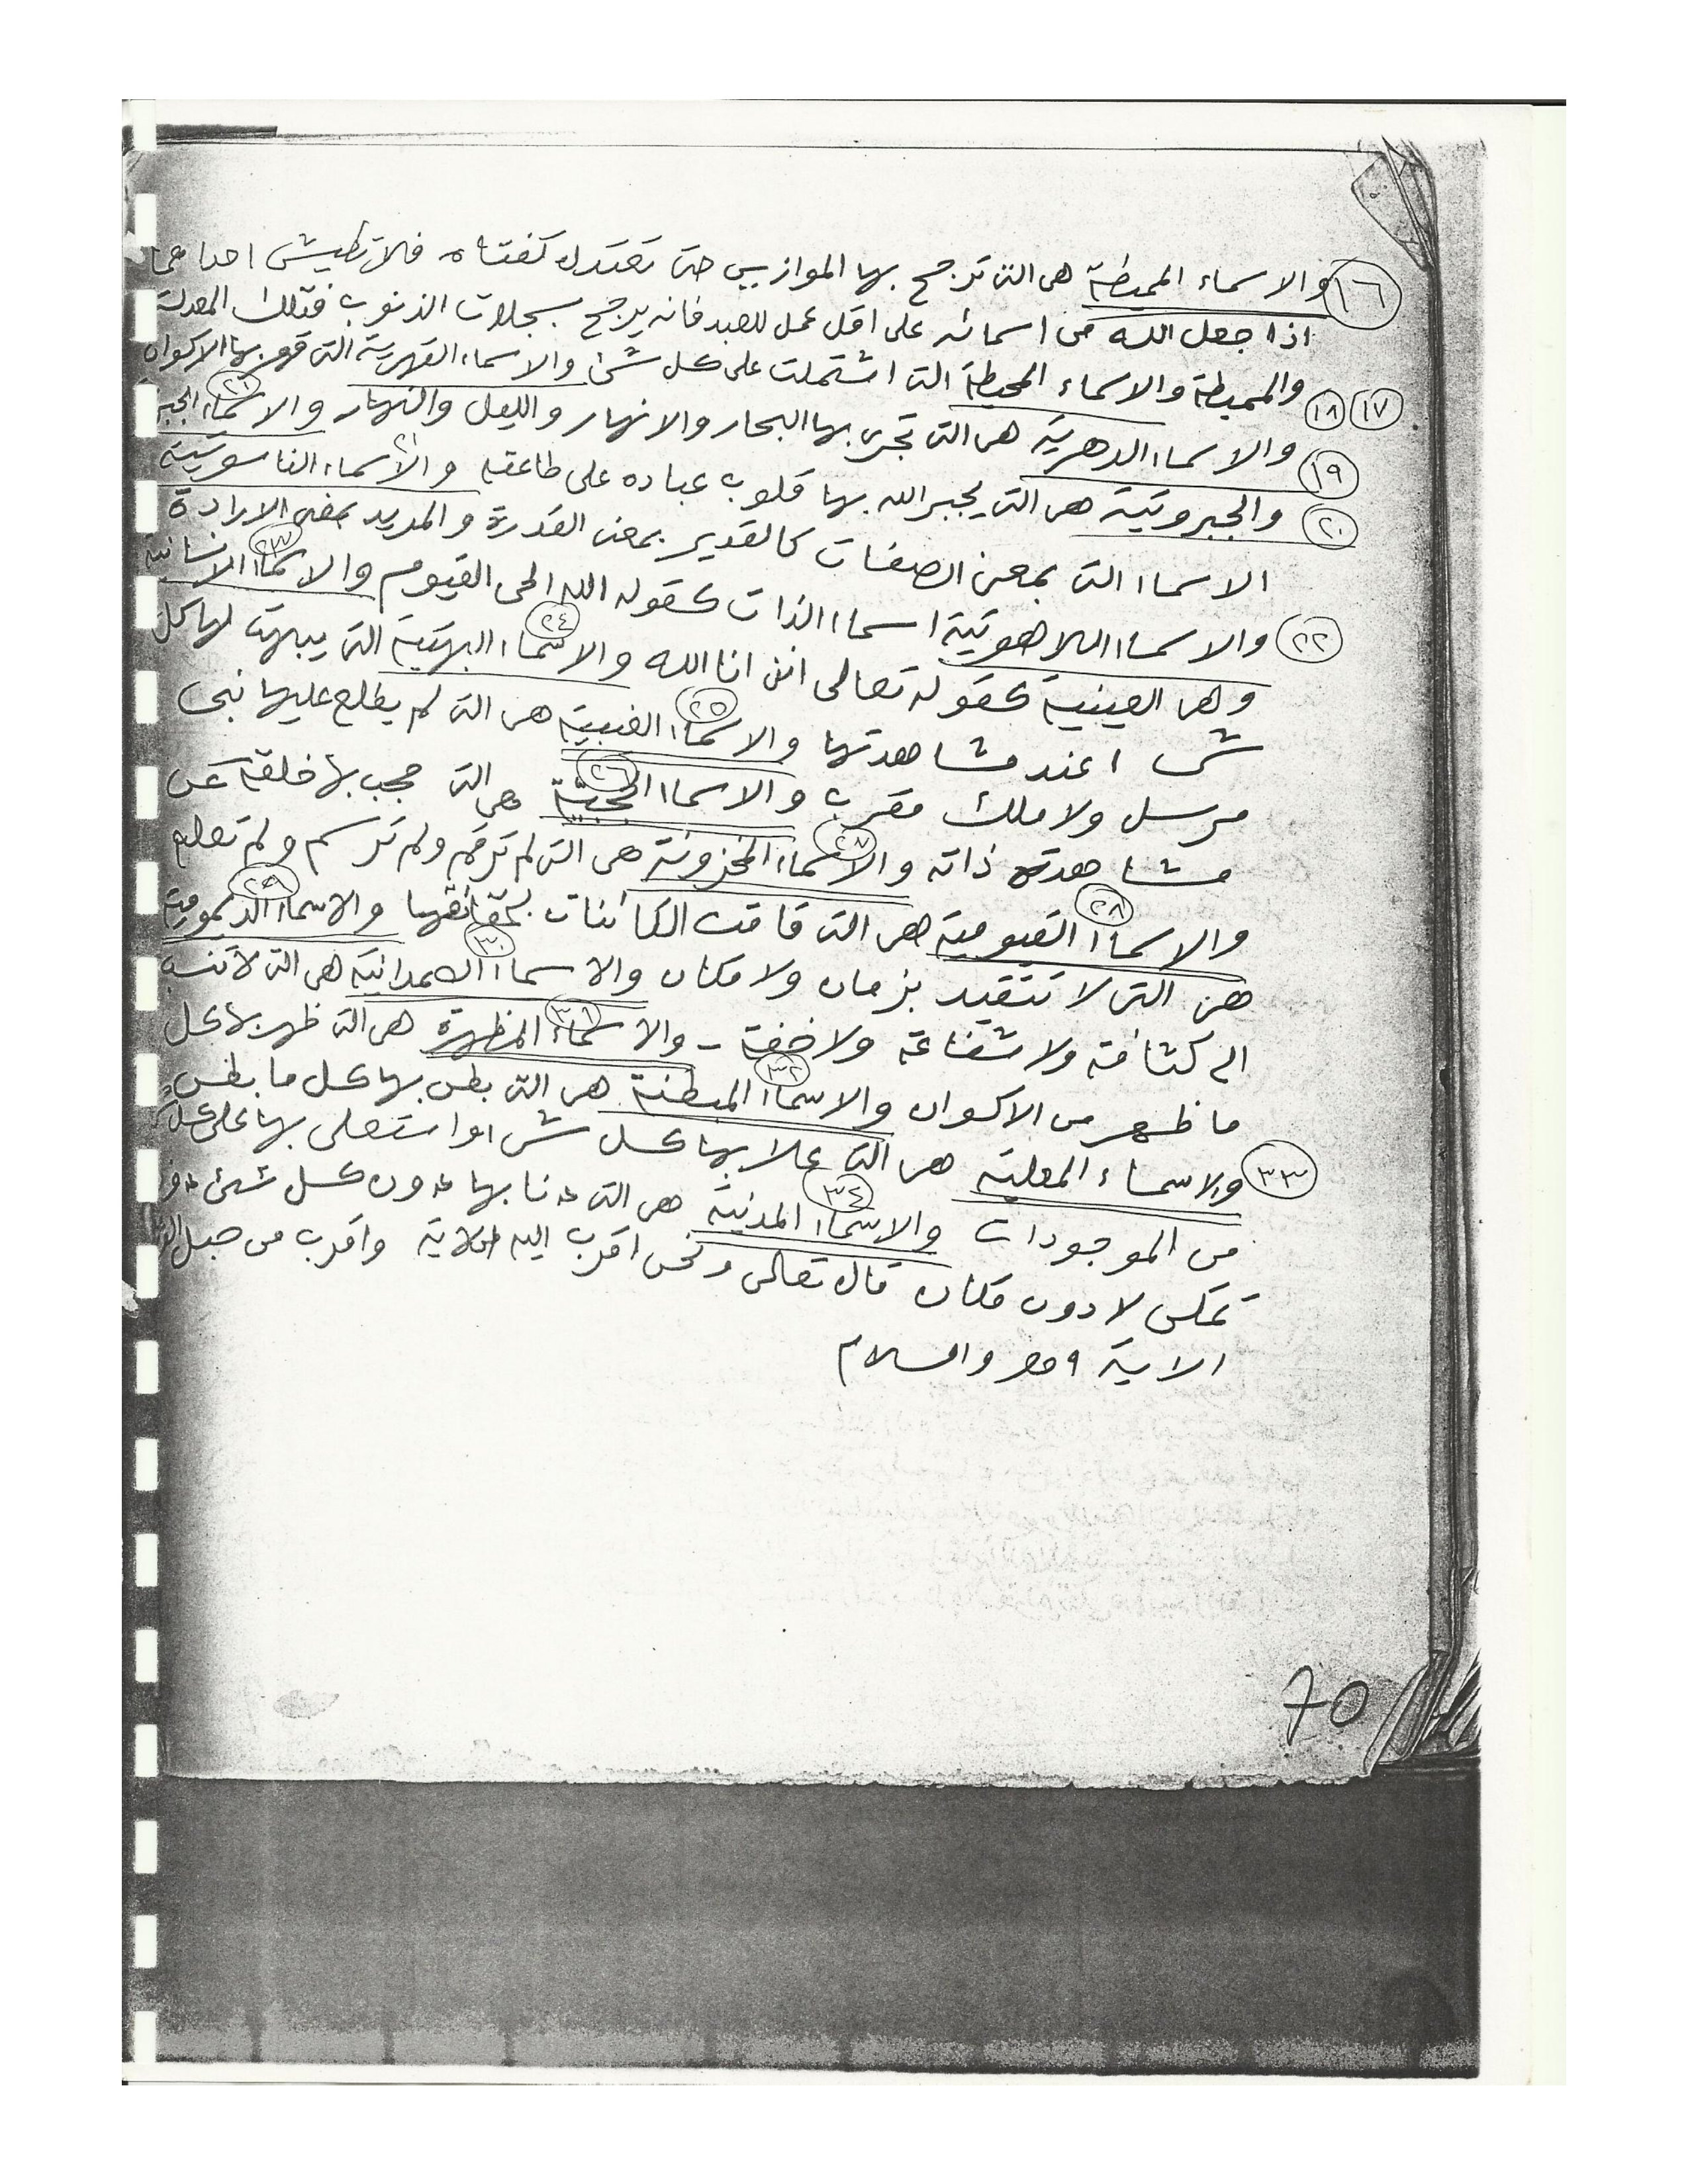 ١٦ والاسماء المميطة هى التى ترجح بها الموازين حتى تعتدل كفتاه فلا تطيش احداهما
اذا جعل الله من اسمائه على اقل عمل للعبد فانه يرجح بسجلات الذنوب فتلك المعدلة
١٧ ١٨ والمميطة والاسماء المحيطة التى اشتملت على كل شئ والاسماء القهرية التى قهر بها الاكوان
١٩ والاسماء الدهرية هى التى تجرى بها البحار والانهار والليل والنهار والاسماء الجبر
٢٠ والجبروتية هى التى يجبر الله بها قلوب عباده على طاعته ٢١ والاسماء الناسوتية
الاسماا التى بمعنى الصفات كالقدير بمعنى القدرة والمريد بمعنى الارادة
٢٢ والاسماا اللاهوتية اسماا الذات كقوله الله الحى القيوم ٢٣ والاسماا الانسانية
وهى العينية كقوله تعالى اننى انا الله ٢٤ والاسماا البهتية التى يبهت لها كل
شى ا عند مشاهدتها ٢٥ والاسماا الغيبية هى التى لم يطلع عليها نبى
مرسل ولا ملك مقرب ٢٦ والاسماا الحجبية هى التى حجب بها خلقه عن
مشاهدة ذاته ٢٧ والاسماا المخزونة هى التى لم ترقم ولم ترسم ولم تعلم
٢٨ والاسماا القيومية هى التى قامت الكائنات بحقائقها ٢٩ والاسماا الديمومية
هى التى لا تتقيد بزمان ولا مكان ٣٠ والاسماا الصمدانية هى التى لا تنسب
الى كثافة ولا شفاعة ولا خفة - ٣١ والاسماء المظهرة هى التى ظهر بها كل
ما ظهر من الاكوان ٣٢ والاسماا المبطنة هى التى بطن بها كل ما بطن
٣٣ والاسماء المعلية هى التى علا بها كل شى ا واستعلى بها على كل
من الموجودات ٣٤ والاسماا المدنية هى التى دنا بها دون كل شئ دنو
تمكن لا دون مكان قال تعالى ونحن اقرب اليه الاية واقرب من حبل
الاية والسلام
70